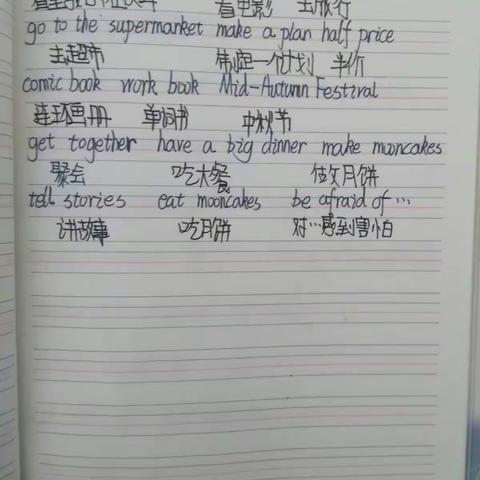 看电影 去旅行
go to the supermarket make a plan half price
去超市 制定一个计划 半价
comic book work book Mid-Autumn Festival
连环画册 单词书 中秋节
get together have a big dinner make mooncakes
聚会 吃大餐 做月饼
tell stories eat mooncakes be afraid of ...
讲故事 吃月饼 对…感到害怕